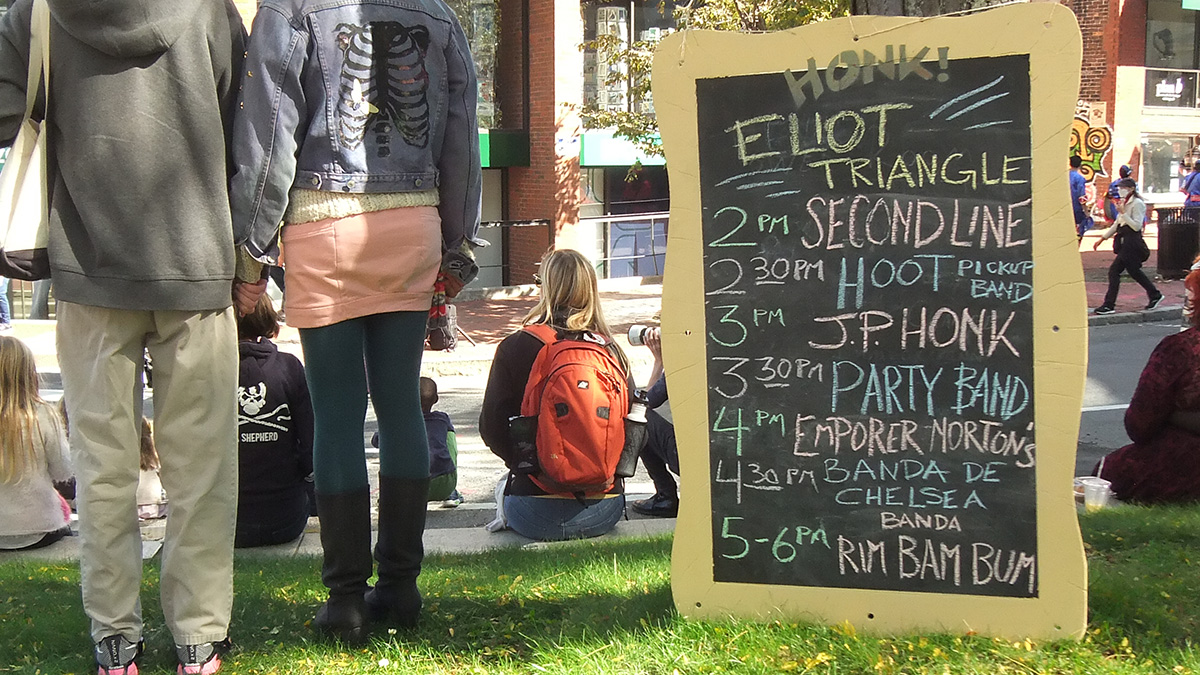 HONK!
ELIOT
TRIANGLE
2 PM SECOND LINE
2 30 PM HOOT PICKUP
BAND
3 PM J.P. HONK
3 30 PM PARTY BAND
4 PM EMPORER NORTON'S
4 30 PM BANDA DE
CHELSEA
BANDA
5-6 PM RIM BAM BUM
SHEPHERD